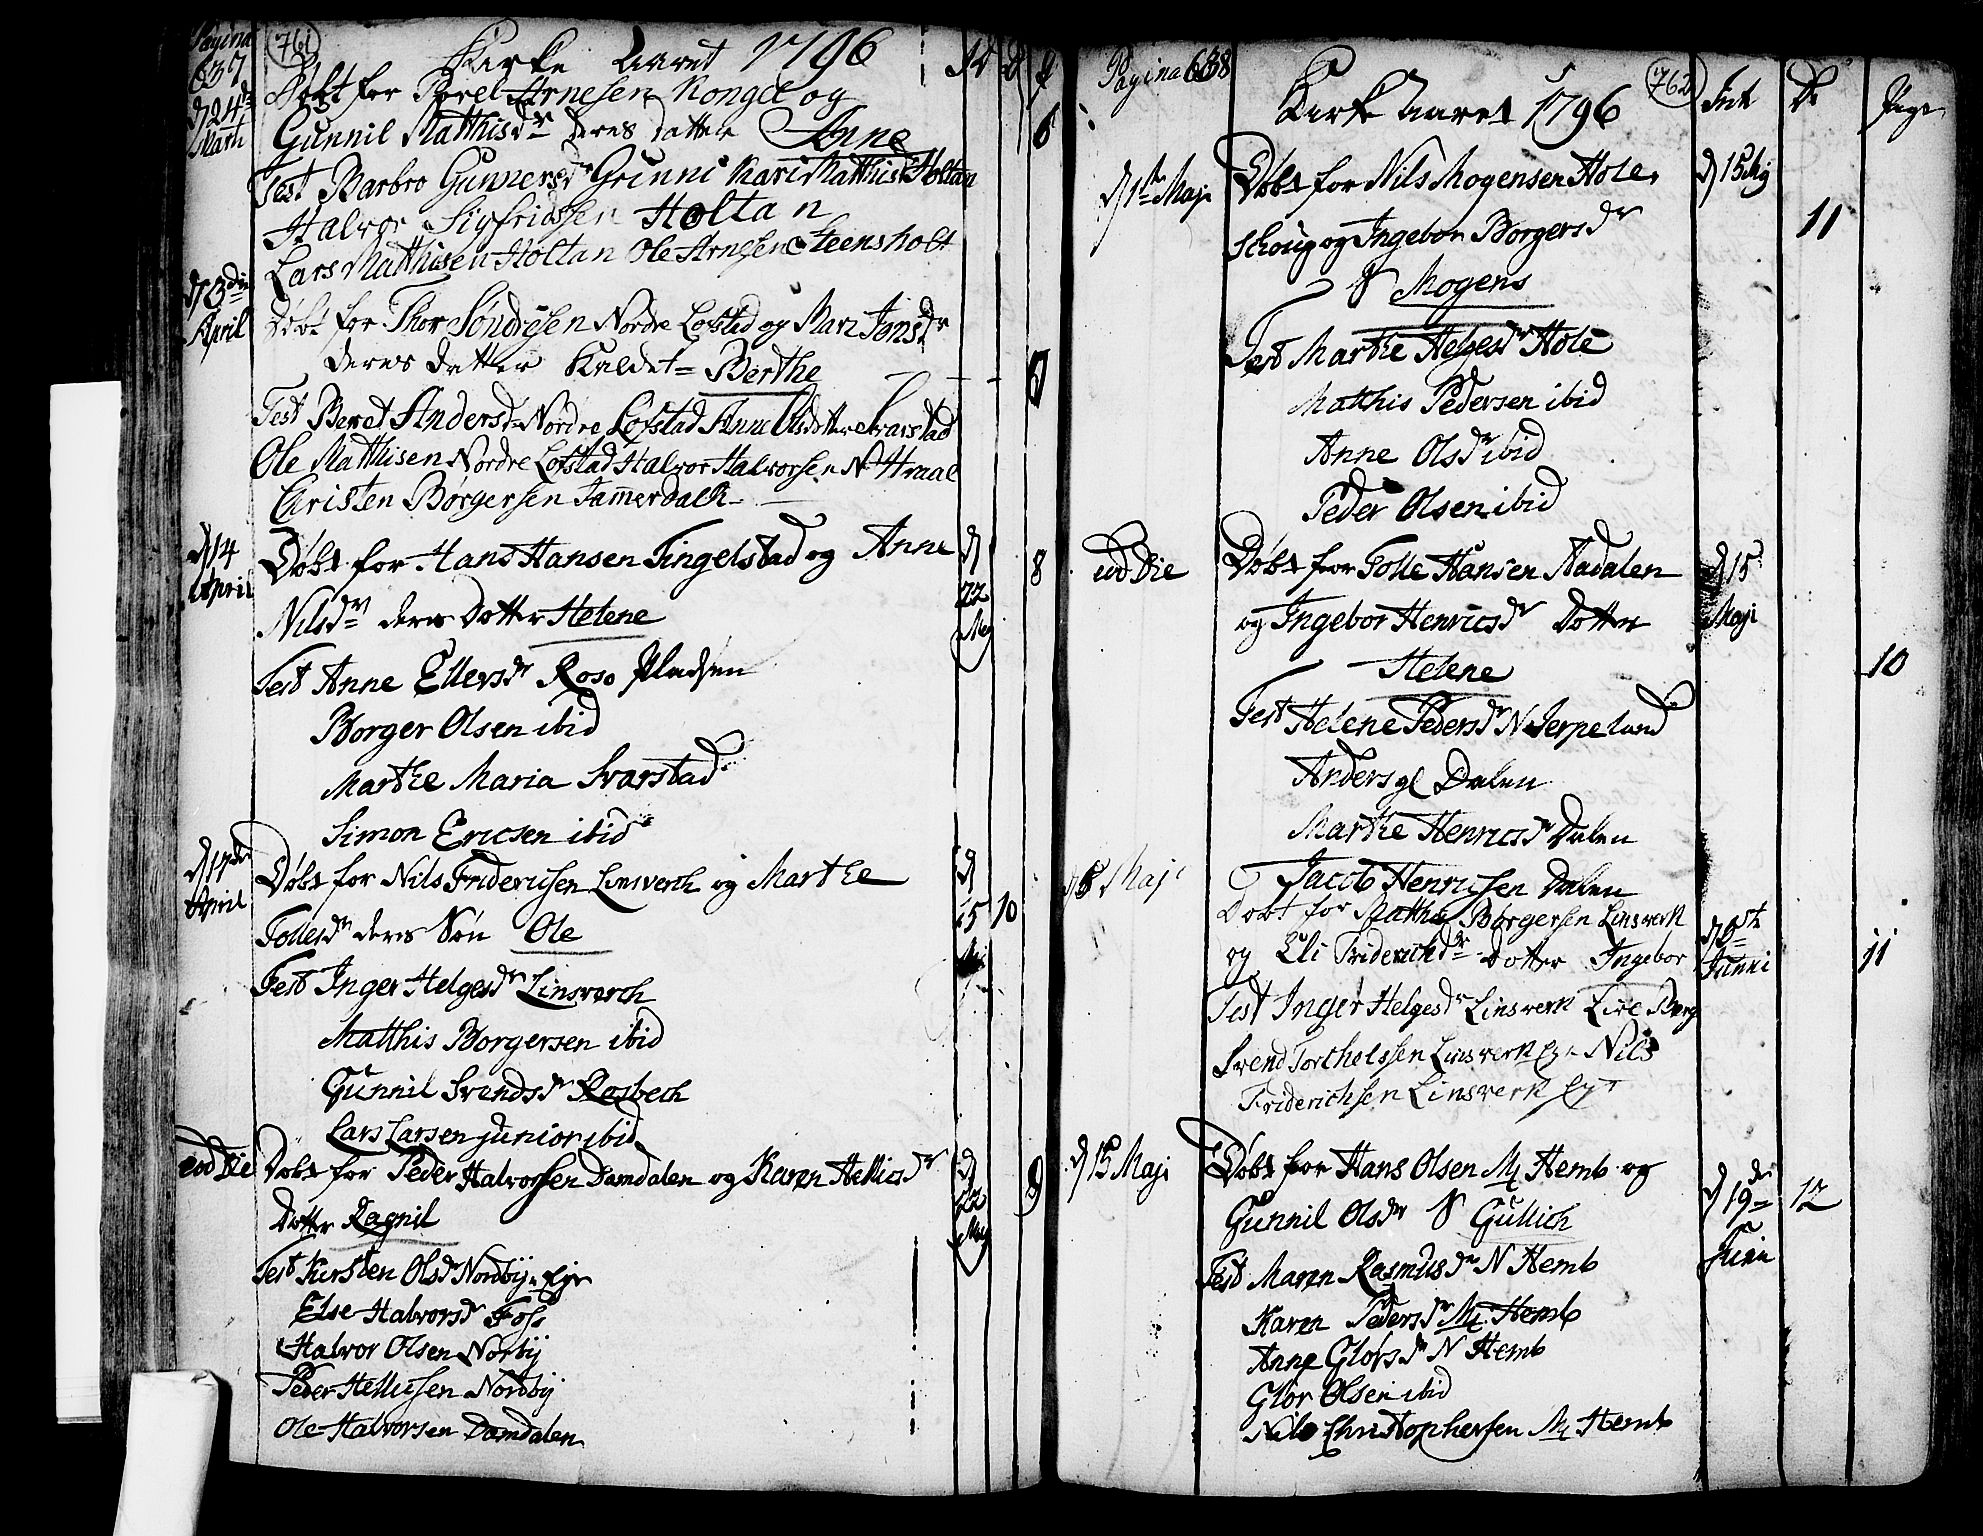 Pagina
637
761
Kirke Aaret 1796
d 24de
Martii
Døbt for Povel Arnesen Kongel og
Gunnil Matthisdr deres datter Anne
6
Test Barbro Gunnersdr Grinni Kari Matthisdr Holtan
Halvor Sigfridssen Holtan
Lars Matthisen Holtan Ole Arnesen Steensholt
d 3die
April
Døbt for Thor Søndresen Nordre Lofstad og Mari Jonsdr
deres datter Kaldet Berthe
7
Test Beret Andersdr Nordre Lofstad Anne Olsdotter Evarstad
Ole Matthisen Nordre Lofstad Halvor Halvorsen N Hraal
Christen Børgersen Jammerdalh
d 14
April
Døbt for Hans Hansen Tingelstad og Anne
Nilsdr deres Dotter Helene
d
22
May
8
Test Anne Ellersdr Roso Pladsen
Borger Olsen ibid
Marthe Maria Svarstad
Simon Ericsen ibid
d 17de
April
Døbt for Nils Friderichsen Linsverch og Marthe
Tollesdr deres Søn Ole
d
15
10
Test Inger Helgesdr Linsverch
Matthis Borgersen ibid
Gunnil Svendsdr Rosbech
Lars Larsen junior ibid
eod Die
Døbt for Peder Halvorssen Damdalen og Karen Hellicsdr
Dotter Ragnil
d
22
May
9
Test Kirsten Olsdr Nordby Eje
Else Halvorsdr Foss
Halvor Olsen Norby
Peder Hellicsen Nordby
Ole Halvorsen Damdalen
Pagina 638
762
Kirke Aaret 1796
Int
Dr
Pige
d 1te Maji
Døbt for Nils Mogensen Hole
Schoug og Ingebor Borgersdr
S Mogens
d 15 Maj
11
Test Marthe Helgesdr Hole
Matthis Pedersen ibid
Anne Olsdr ibid
Peder Olsen ibid
eod Die
Døbt for Tolle Hansen Aadalen
og Ingebor Henricsdr Dotter
Helene
d 15
Maji
10
Test Helene Pedersdr N Jerpeland
Anders gl Dalen
Marthe Henricsdr Dalen
Jacob Henricsen Dalen
d 8 Maji
Døbt for Matthis Børgersen Linsverk
og Eli Friderichdr Dotter Ingebor
d 9de
Junni
11
Test Inger Helgesdr Linsverk Live Børg
Svend Torthelssen Linsverk Ey Nils
Friderichsen Linsverk Ey
d 15 Maji
Døbt for Hans Olsen M Hemb og
Gunnil Olsdr S Gullich
d 19de
Juni
12
Test Maren Rasmusdr N Hemb
Karen Pedersdr M Hemb
Anne Glorsdr N Hemb
Glor Olsen ibid
Nils Christophersen M Hemb